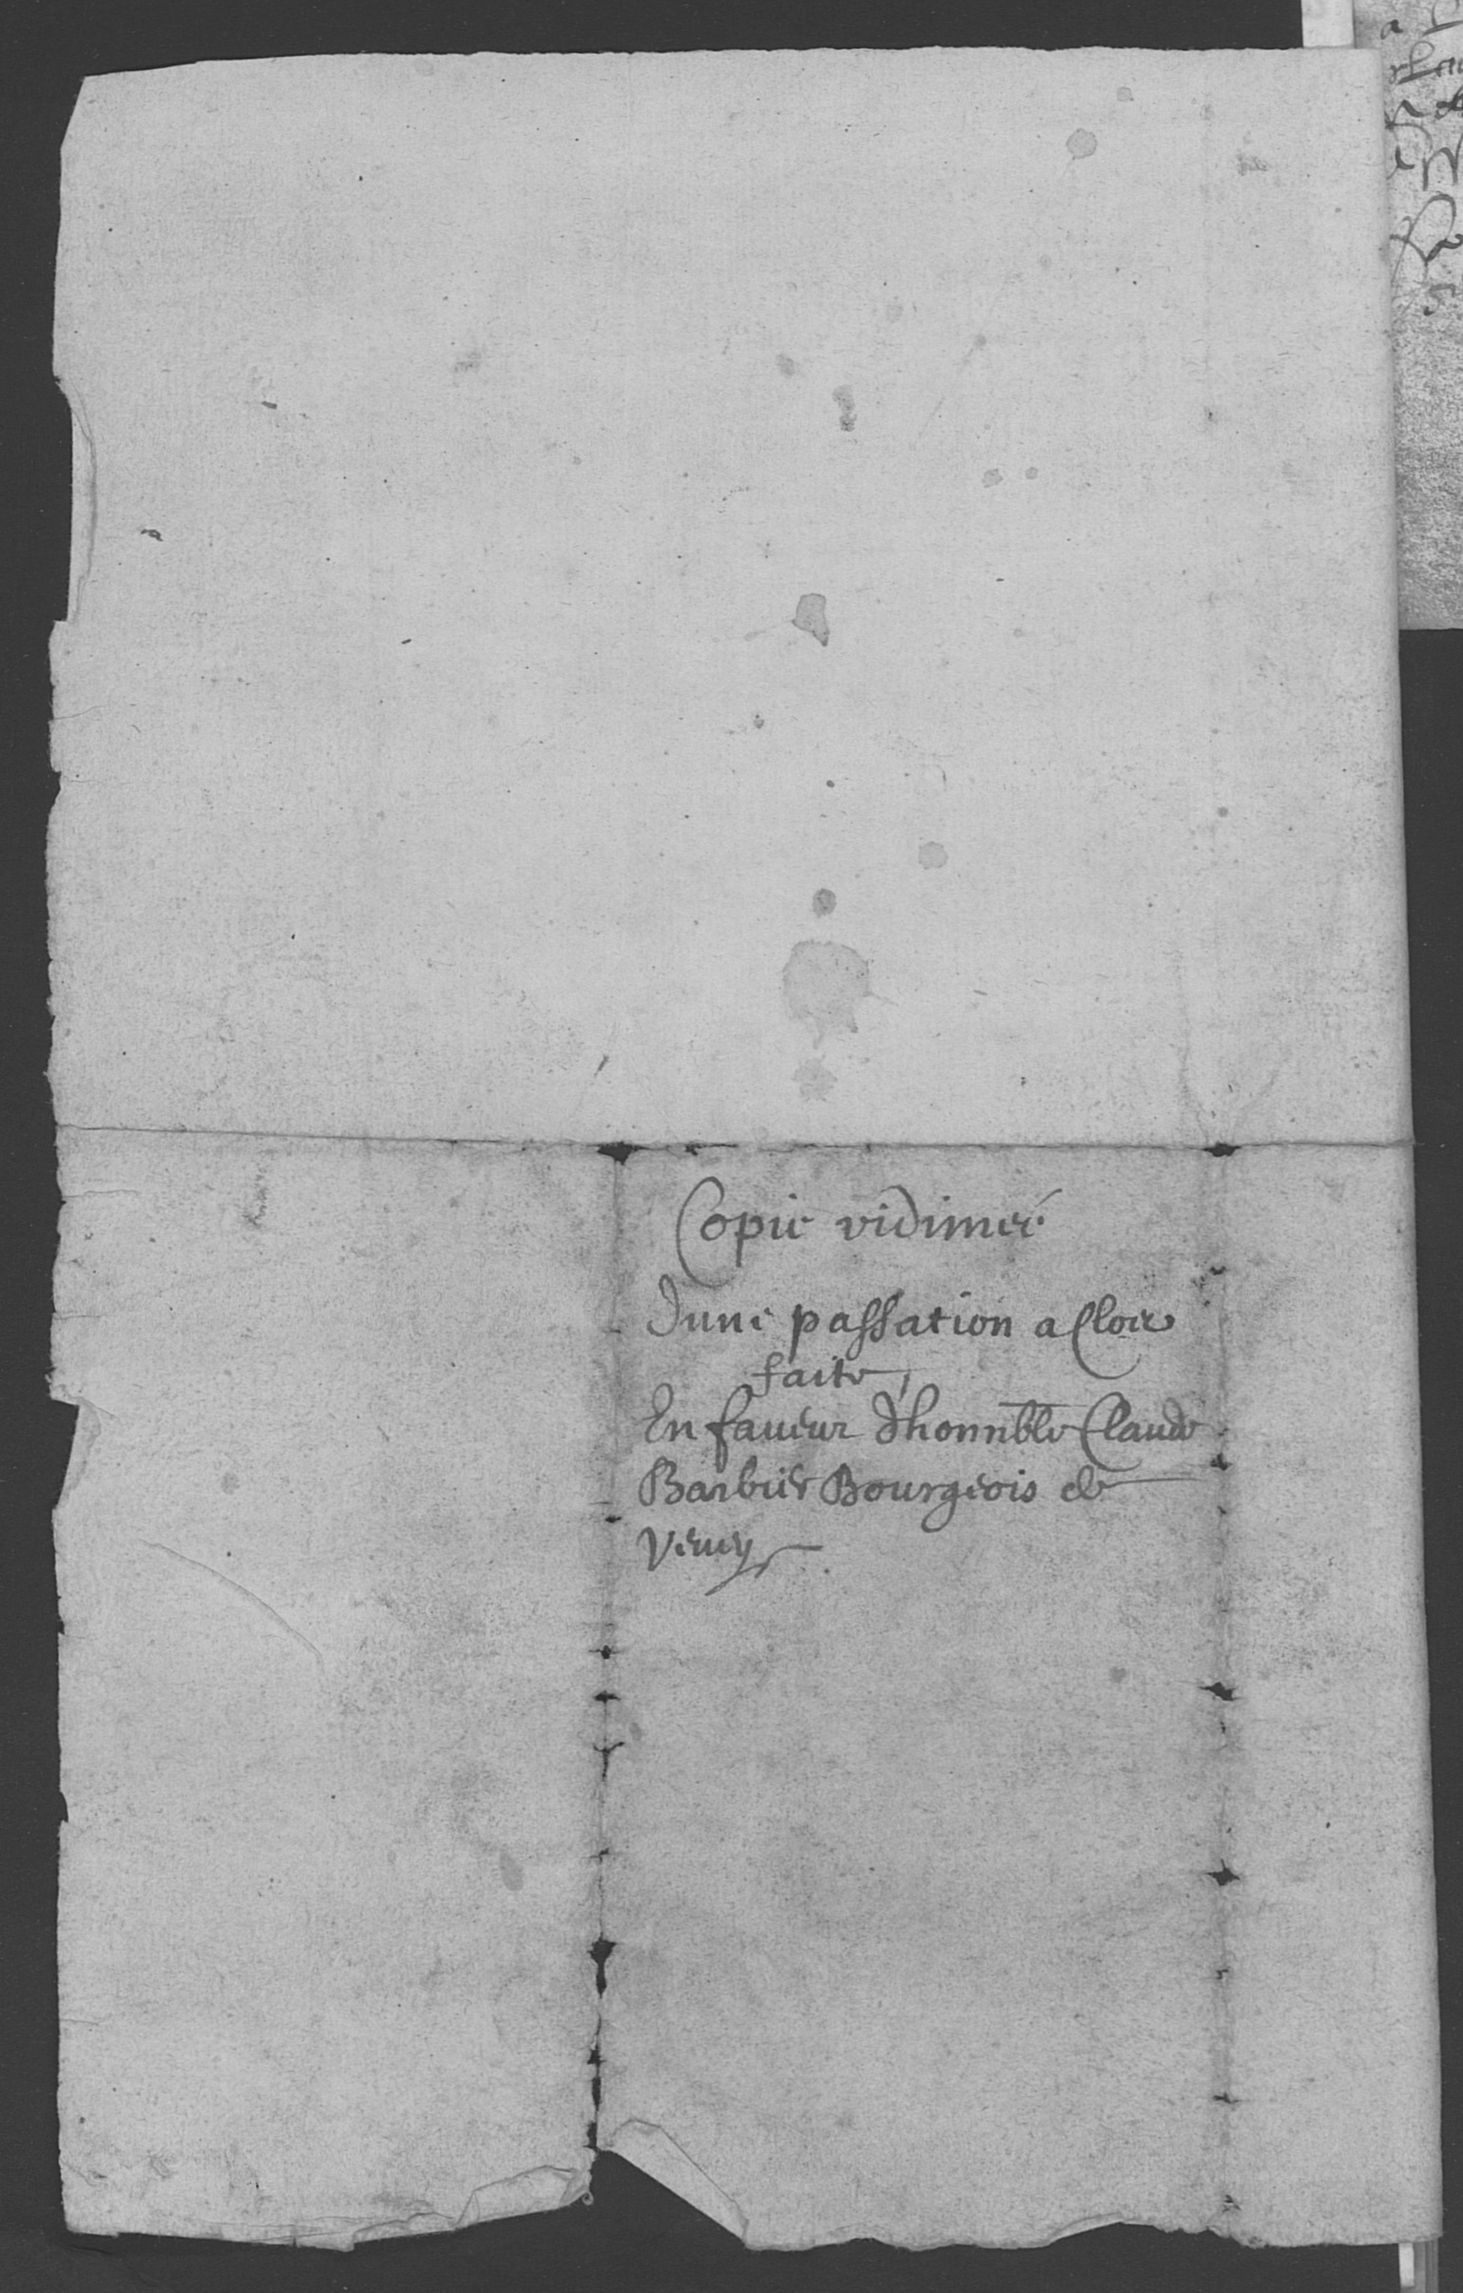 Copie vidimeé
Dune passation a Clore
faite,
En faueur dhonnble Claude
Barbier Bourgeois de
Veuey